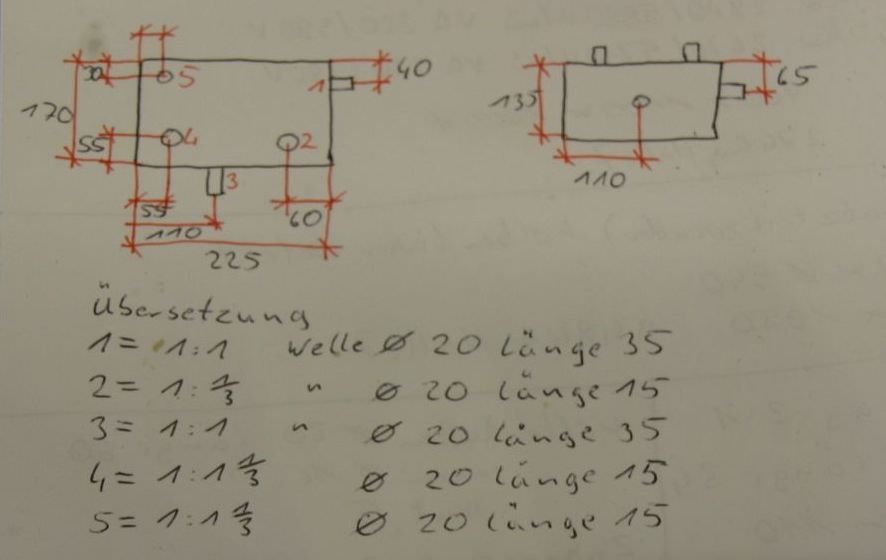 30
5
1
40
170
55
4
2
3
55
110
60
225
135
65
110
Übersetzung
1 = 1:1 Welle Ø 20 Länge 35
2 = 1:1/3 " Ø 20 Länge 15
3 = 1:1 " Ø 20 Länge 35
4 = 1:1 1/3 Ø 20 Länge 15
5 = 1:1 1/3 Ø 20 Länge 15